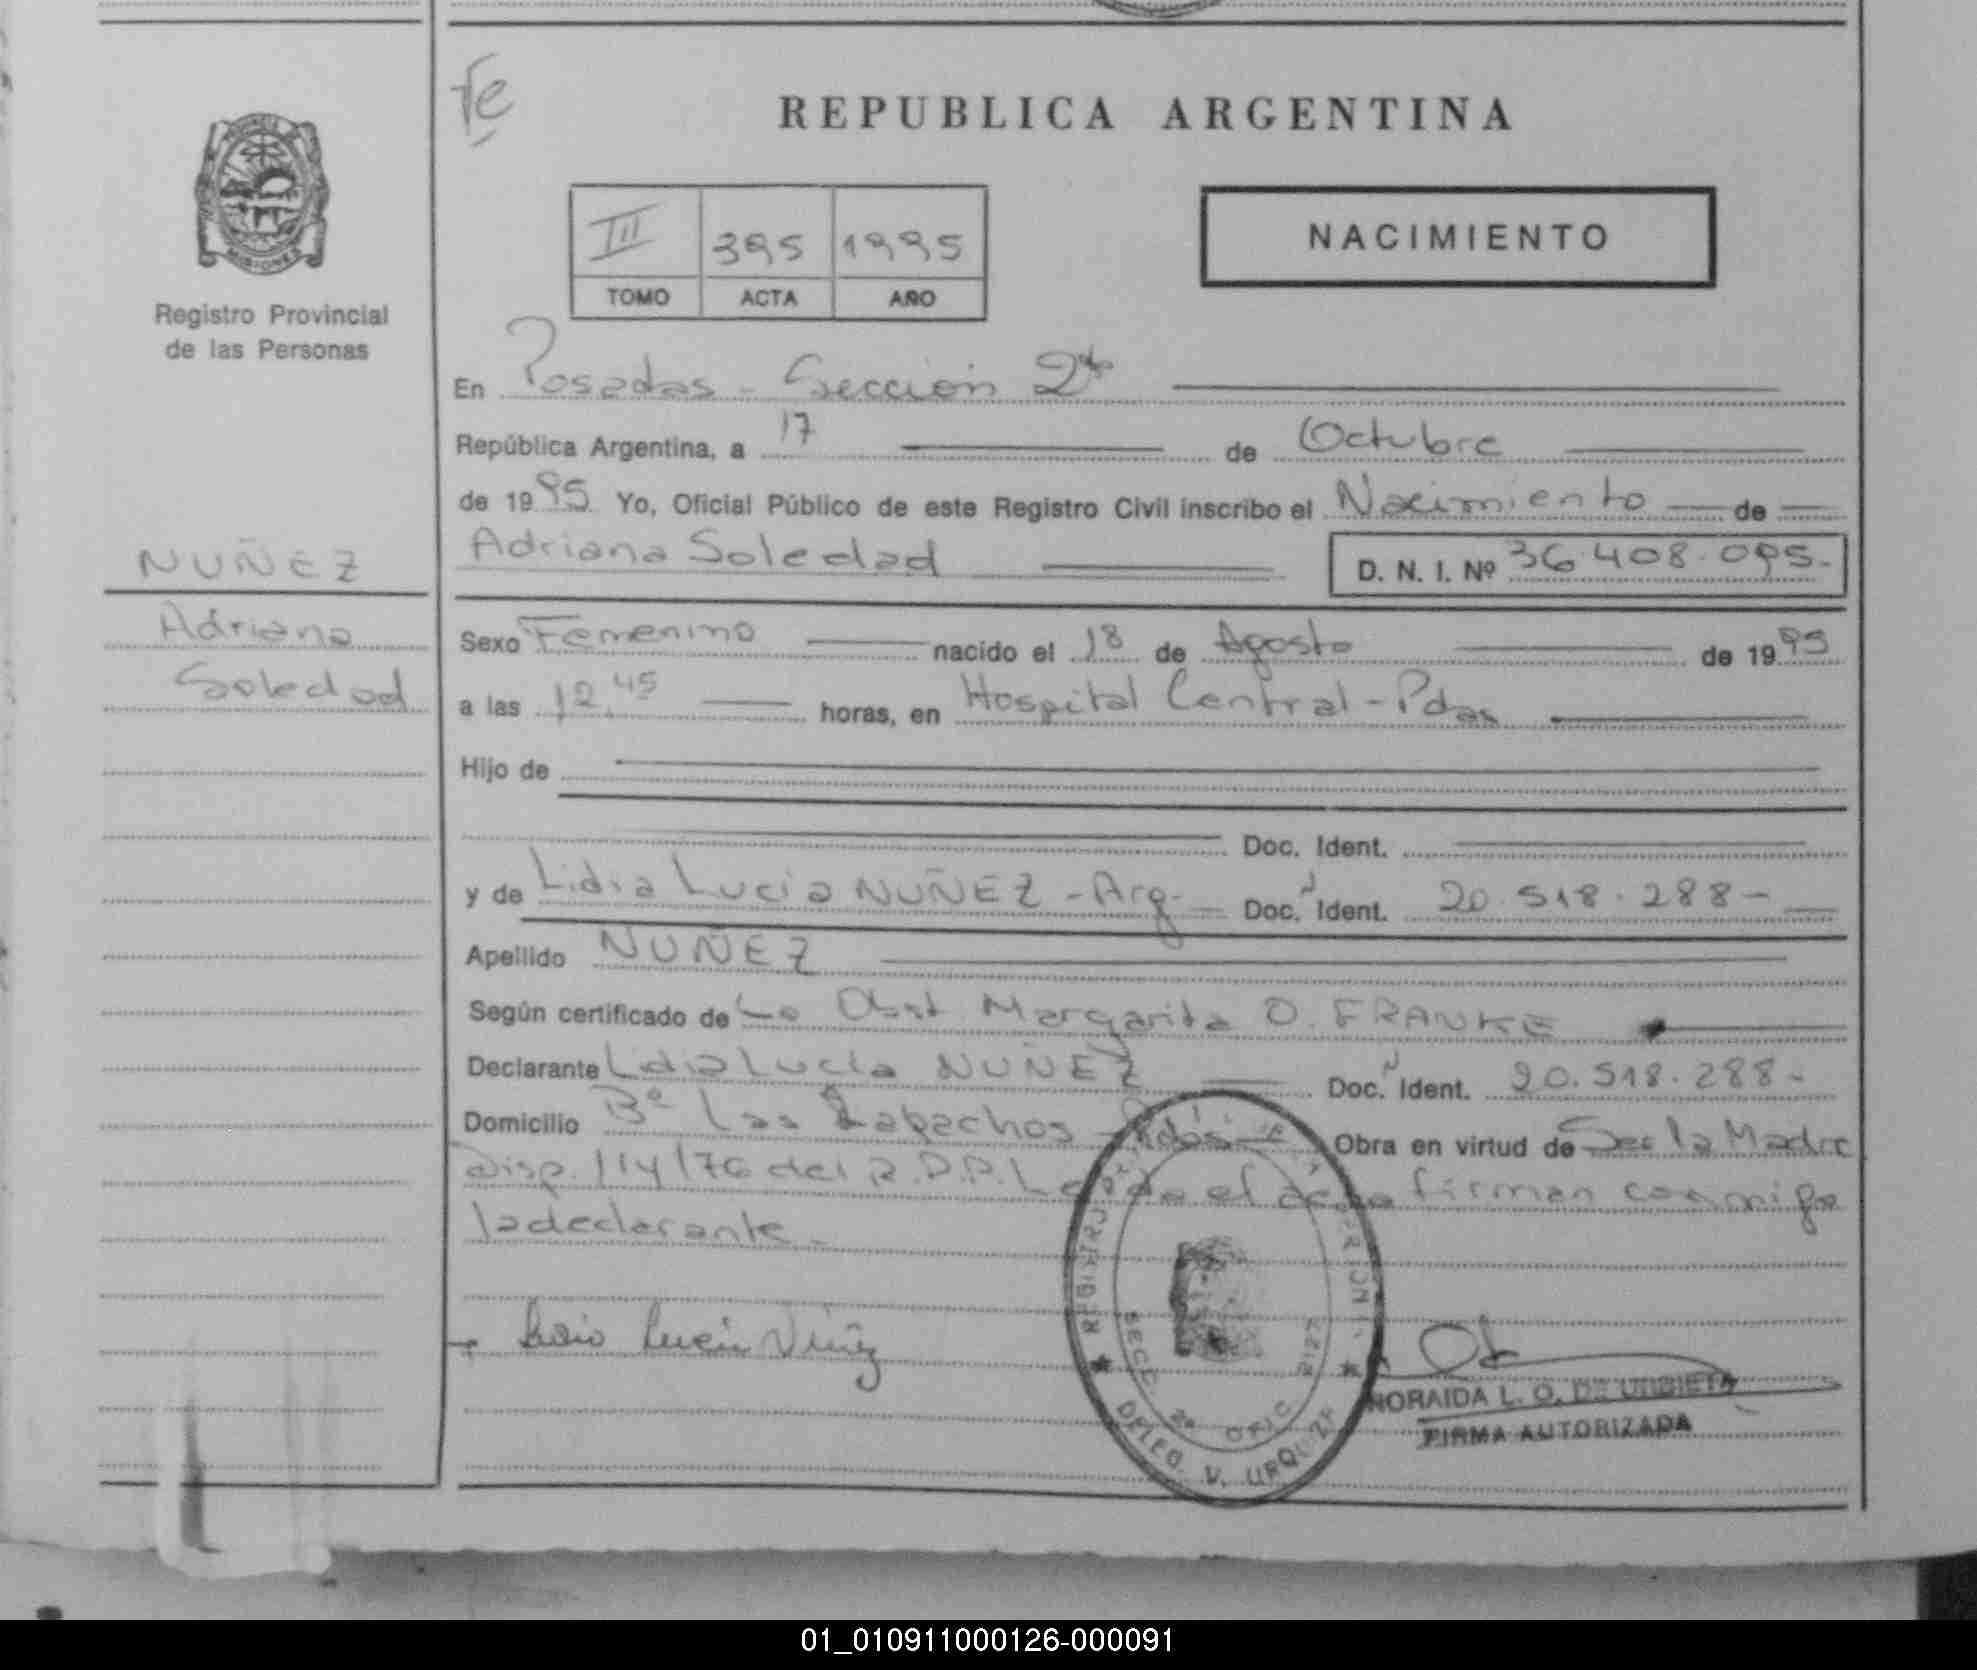 Te
REPUBLICA ARGENTINA
III 395 1995
TOMO ACTA AÑO
NACIMIENTO
PROVINCIA DE MISIONES
Registro Provincial
de las Personas
En Posadas - Sección 2da
República Argentina, a 17 de Octubre
de 1995 Yo, Oficial Público de este Registro Civil inscribo el Nacimiento de
Adriana Soledad D. N. I. Nº 36.408.095.-
NUÑEZ
Adriana
Soledad
Sexo Femenino nacido el 18 de Agosto de 1995
a las 12,45 horas, en Hospital Central - Pdas
Hijo de
Doc. Ident.
y de Lidia Lucia NUÑEZ - Arg.- Doc. Ident. 20.518.288-
Apellido NUÑEZ
Según certificado de La Obst Margarita O. FRANKE
Declarante Lidia Lucia NUÑEZ Doc. Ident. 20.518.288-
Domicilio Bº Los Lapachos - Pdas.- Obra en virtud de Ser la Madre
Disp. 114/76 del R.P.P. Leída el acta firman conmigo
la declarante.
Lidia Lucia Nuñez
REGISTRO
DELEG. V. URQUIZA
SECC. 2ª OFIC 2127
NORAIDA L. O. DE URBIETA
FIRMA AUTORIZADA
01_010911000126-000091